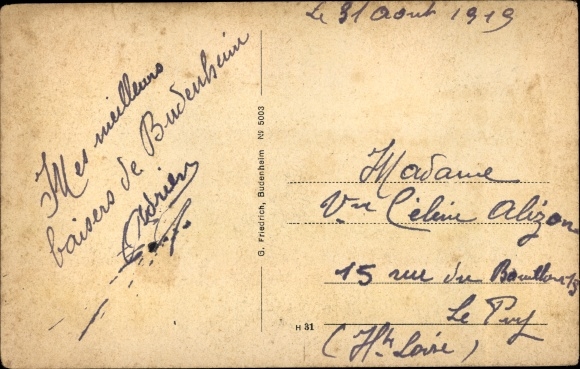 Le 31 Août 1919
Mes meilleurs
baisers de Budenheim
Adrien
G. Friedrich, Budenheim № 5003
Madame
Vve Céline Alizon
15 rue du
Le Puy
H 31
(Hte Loire)